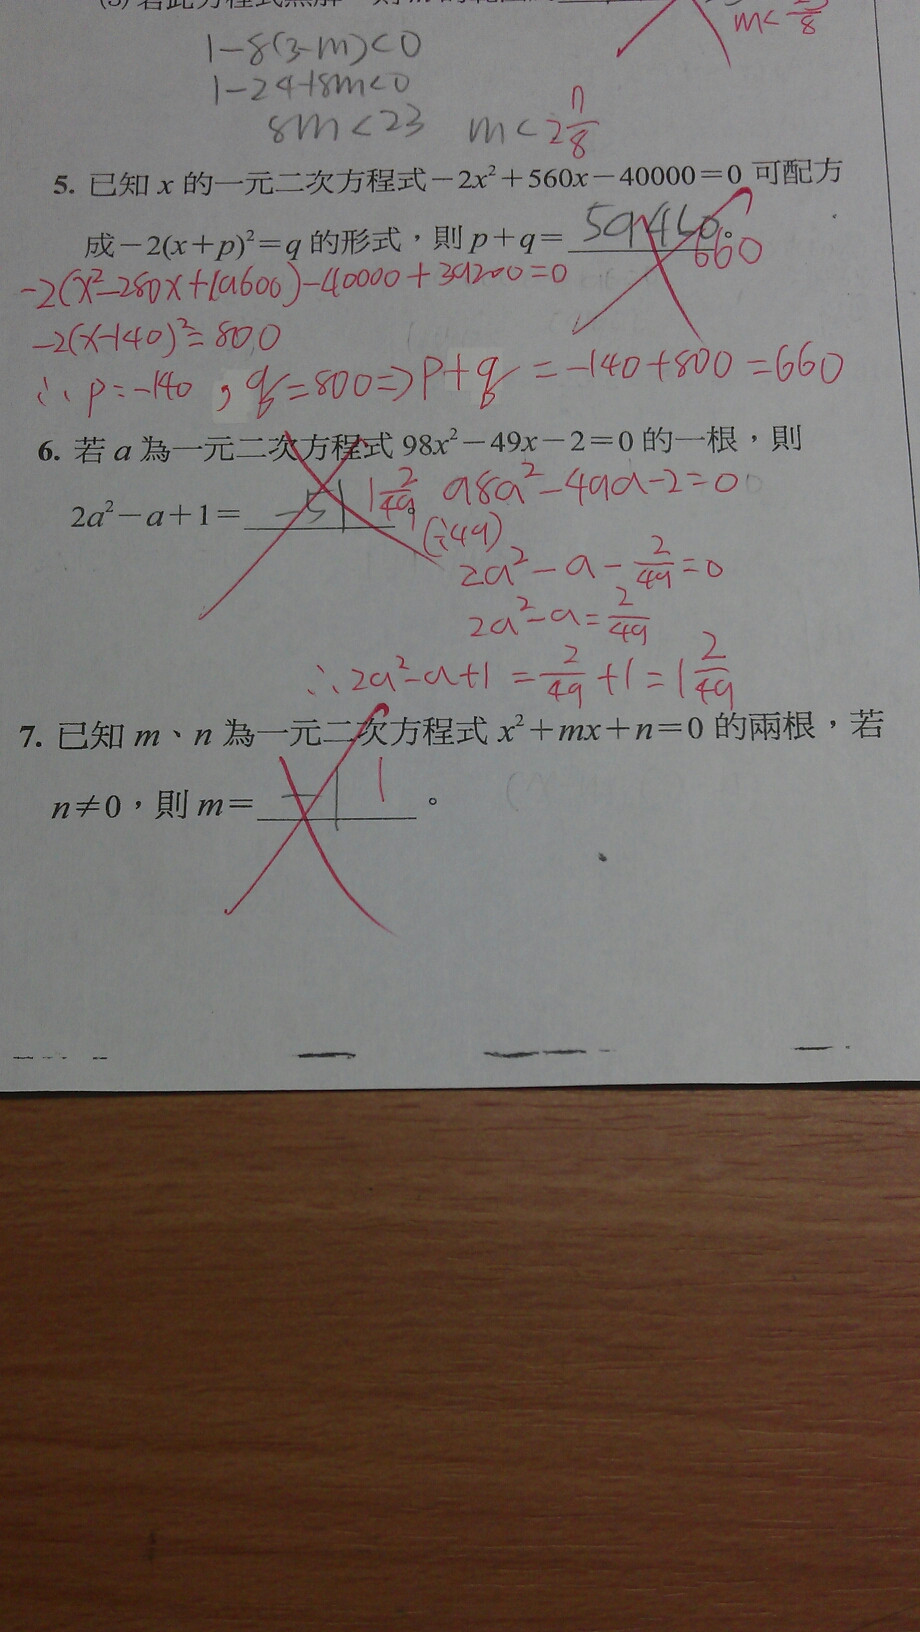 (3) 若此方程式無解，則
m<
8
1-8(3-m)<0
1-24+8m<0
8m<23 m<2
8
5. 已知 x 的一元二次方程式－2x²＋560x－40000＝0 可配方
成－2(x＋p)²＝q 的形式，則 p＋q＝59460。
660
-2(x²-280x+19600)-40000+39200=0
-2(x-140)²=800
∴p=-140，q=800⇒p+q=-140+800=660
6. 若 a 為一元二次方程式 98x²－49x－2＝0 的一根，則
98a²-49a-2=0
2a²－a＋1＝-51 1 2/49。
(÷49)
2a²-a-2/49=0
2a²-a=2/49
∴2a²-a+1=2/49+1=1 2/49
7. 已知 m、n 為一元二次方程式 x²＋mx＋n＝0 的兩根，若
n≠0，則 m＝-1 1。